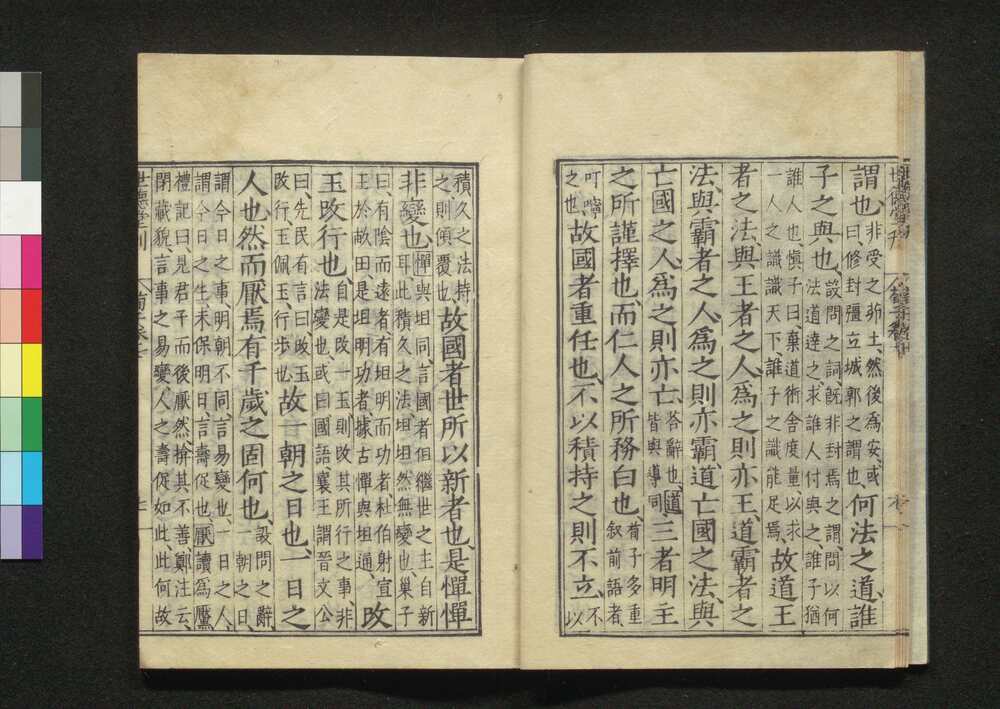 謂也、非受之茆土、然後爲安、或曰、修封彊立城郭之謂也、何法之道、誰
子之與也、設問之詞、旣非封焉之謂、問以何法道達之、求誰人付與之、誰子猶
誰人也、慎子曰、棄道術舍度量以求一人之識識天下、誰子之識能足焉、故道王
者之法、與王者之人、爲之則亦王、道霸者之
法、與霸者之人、爲之則亦霸、道亡國之法、與
亡國之人、爲之則亦亡、荅辭也、道皆與導同、三者明主
之所謹擇也、而仁人之所務白也、荀子多重叙前語者、
叮嚀之也、故國者重任也、不以積持之則不立、不以
積久之法持之則傾覆也、故國者世所以新者也、是憚憚
非變也、憚與坦同、言國者但繼世之主自新耳此積久之法、坦坦然無變也巢子
曰、有陰而遠者、有坦明而功者、杜伯射宣王於畝田、是坦明功者、據古憚與坦通、改
玉改行也、自是改一玉、則改其所行之事、非法變也、或曰國語、襄王謂晉文公
曰、先民有言曰、改玉改行、玉佩玉、行步也、故一朝之日也、一日之
人也然而厭焉有千歲之固何也、設問之辭、一朝之日、
謂今日之事、明朝不同、言易變也、一日之人、謂今日之生未保明日、言壽促也、厭讀爲黶、
禮記曰、見君子而後厭然、揜其不善、鄭注云、閉藏貌、言事之易變、人之壽促如此、此何故
世德堂刊